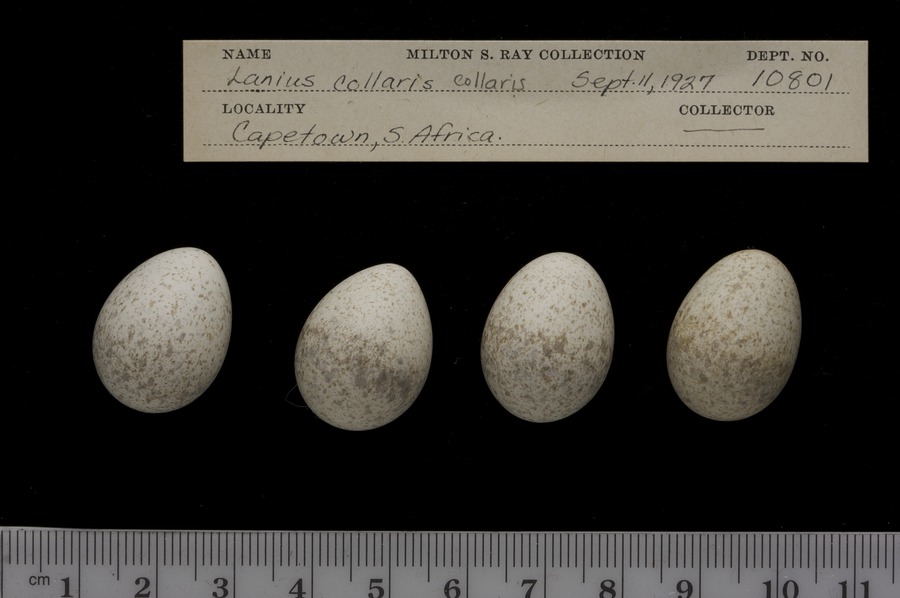 NAME MILTON S. RAY COLLECTION DEPT. NO.
Lanius collaris collaris Sept. 11, 1927 10801
LOCALITY COLLECTOR
Capetown, S. Africa.
cm 1 2 3 4 5 6 7 8 9 10 11